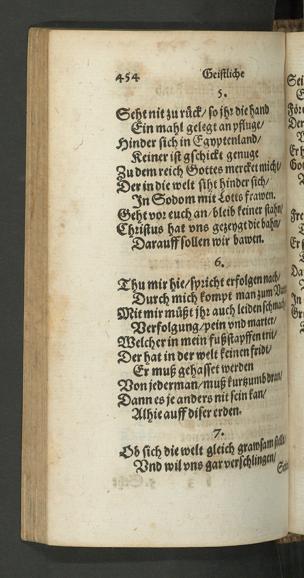 454 Geistliche
5.
Seht nit zu rück/ so jhr die hand
Ein mahl gelegt an pfluge/
Hinder sich in Egyptenland/
Keiner ist gschickt genuge
Zu dem reich Gottes mercket micht/
Der in die welt siht hinder sich/
In Sodom mit Lotis frawen.
Geht vor euch an/ bleib keiner stahn/
Christus hat vns gezeygt die bahn/
Darauff sollen wir bawen.
6.
Thu mir hie/ spricht er folgen nach/
Durch mich kompt man zum
Mit mir müßt jhr auch leiden schmach/
Verfolgung/ pein vnd marter/
Welcher in mein fußstapffen trit/
Der hat in der welt keinen fridt/
Er muß gehasset werden
Von jederman/ muß kurtzumb dran/
Dann es je anders nit sein kan/
Alhie auff diser erden.
7.
Ob sich die welt gleich grawsam stellt/
Vnd wil vns gar verschlingen/